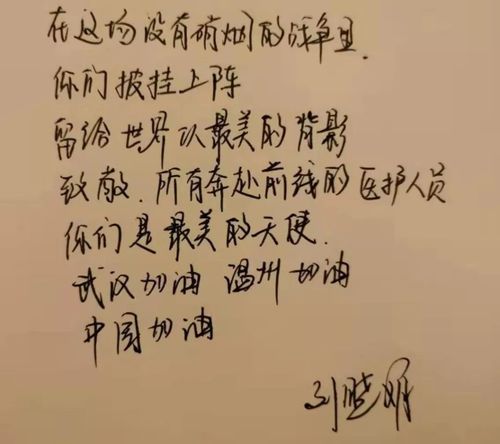 在这场没有硝烟的战争里.
你们披挂上阵
留给世界以最美的背影
致敬.所有奔赴前线的医护人员
你们是最美的天使.
武汉加油 温州加油
中国加油
刘晓明